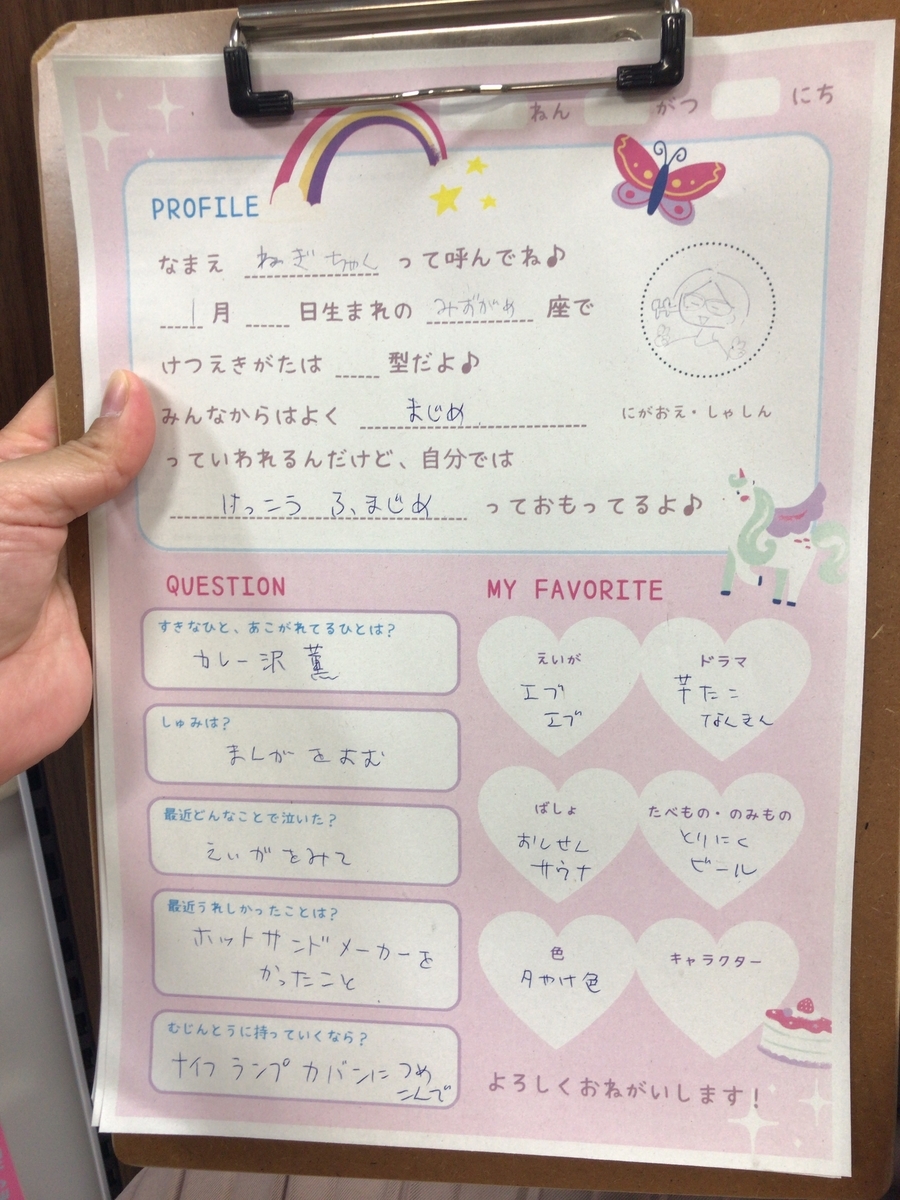 ねん がつ にち
PROFILE
なまえ ねぎちゃん って呼んでね♪
1月 日生まれの みずがめ 座で
けつえきがたは 型だよ♪
みんなからはよく まじめ
にがおえ・しゃしん
っていわれるんだけど、自分では
けっこう ふまじめ っておもってるよ♪
QUESTION
すきなひと、あこがれてるひとは?
カレー沢 薫
しゅみは?
まんがをよむ
最近どんなことで泣いた?
えいがをみて
最近うれしかったことは?
ホットサンドメーカーを
かったこと
むじんとうに持っていくなら?
ナイフ ランプ カバンに つめ
こんで
MY FAVORITE
えいが
エブ
エブ
ドラマ
芋たこ
なんきん
ばしょ
おんせん
サウナ
たべもの・のみもの
とりにく
ビール
色
夕やけ色
キャラクター
よろしくおねがいします!